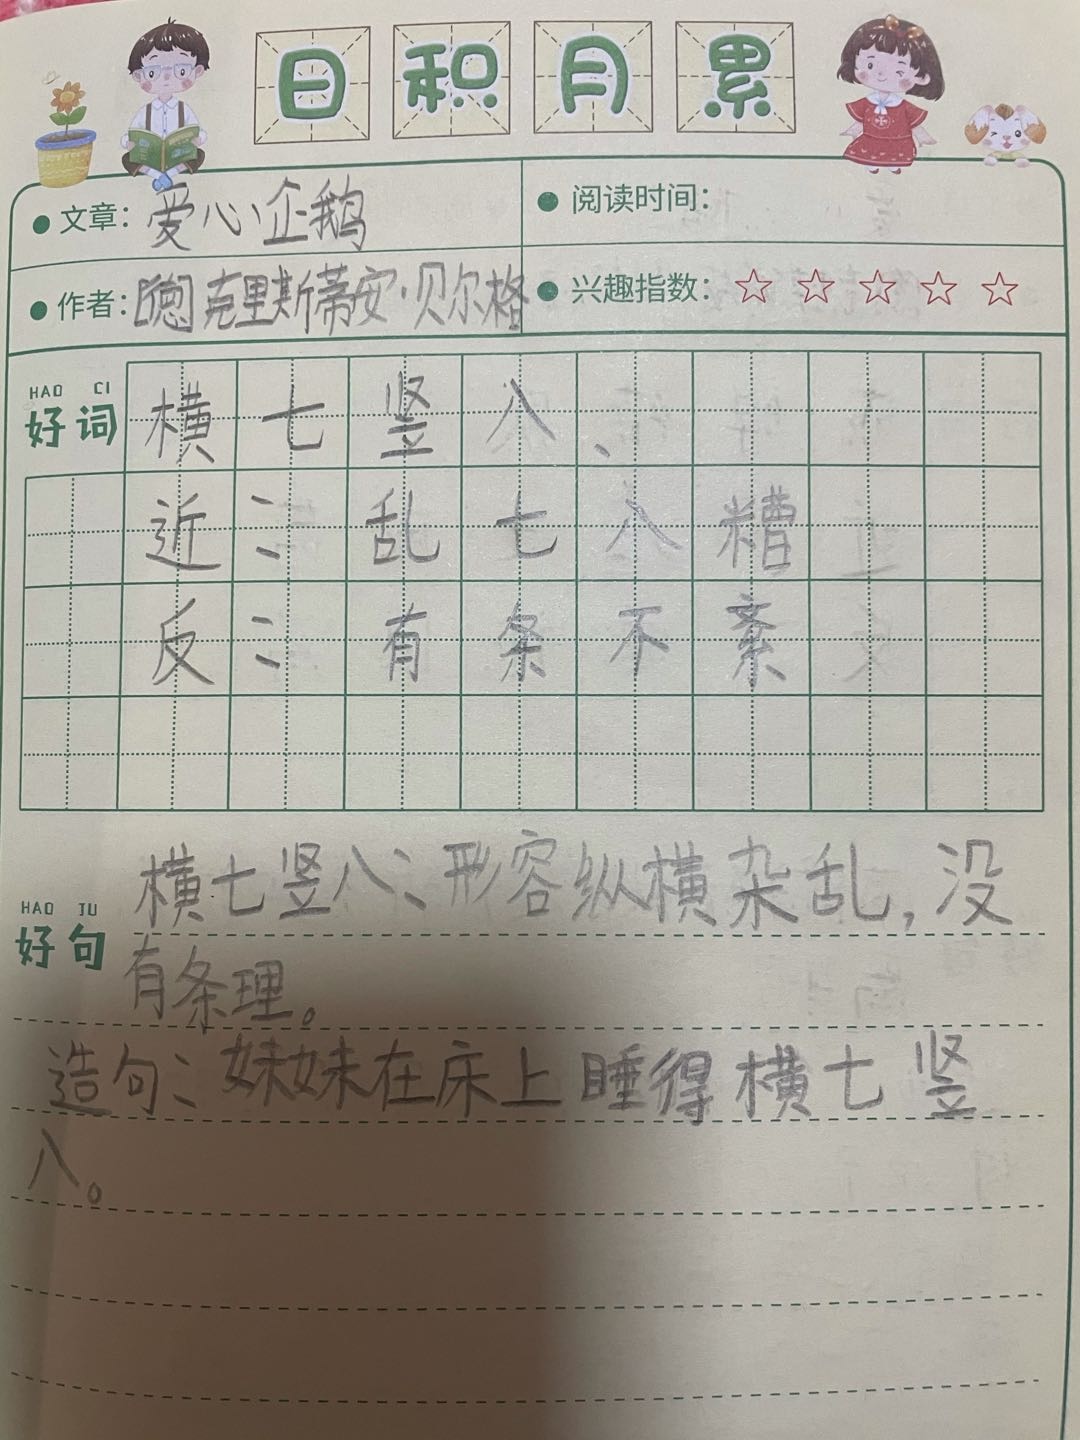 日积月累
文章：爱心企鹅
阅读时间：
作者：[德]克里斯蒂安·贝尔格
兴趣指数：☆☆☆☆☆
HAO CI
好词
横七竖八、
近：乱七八糟
反：有条不紊
HAO JU
好句
横七竖八：形容纵横杂乱，没
有条理。
造句：妹妹在床上睡得横七竖
八。